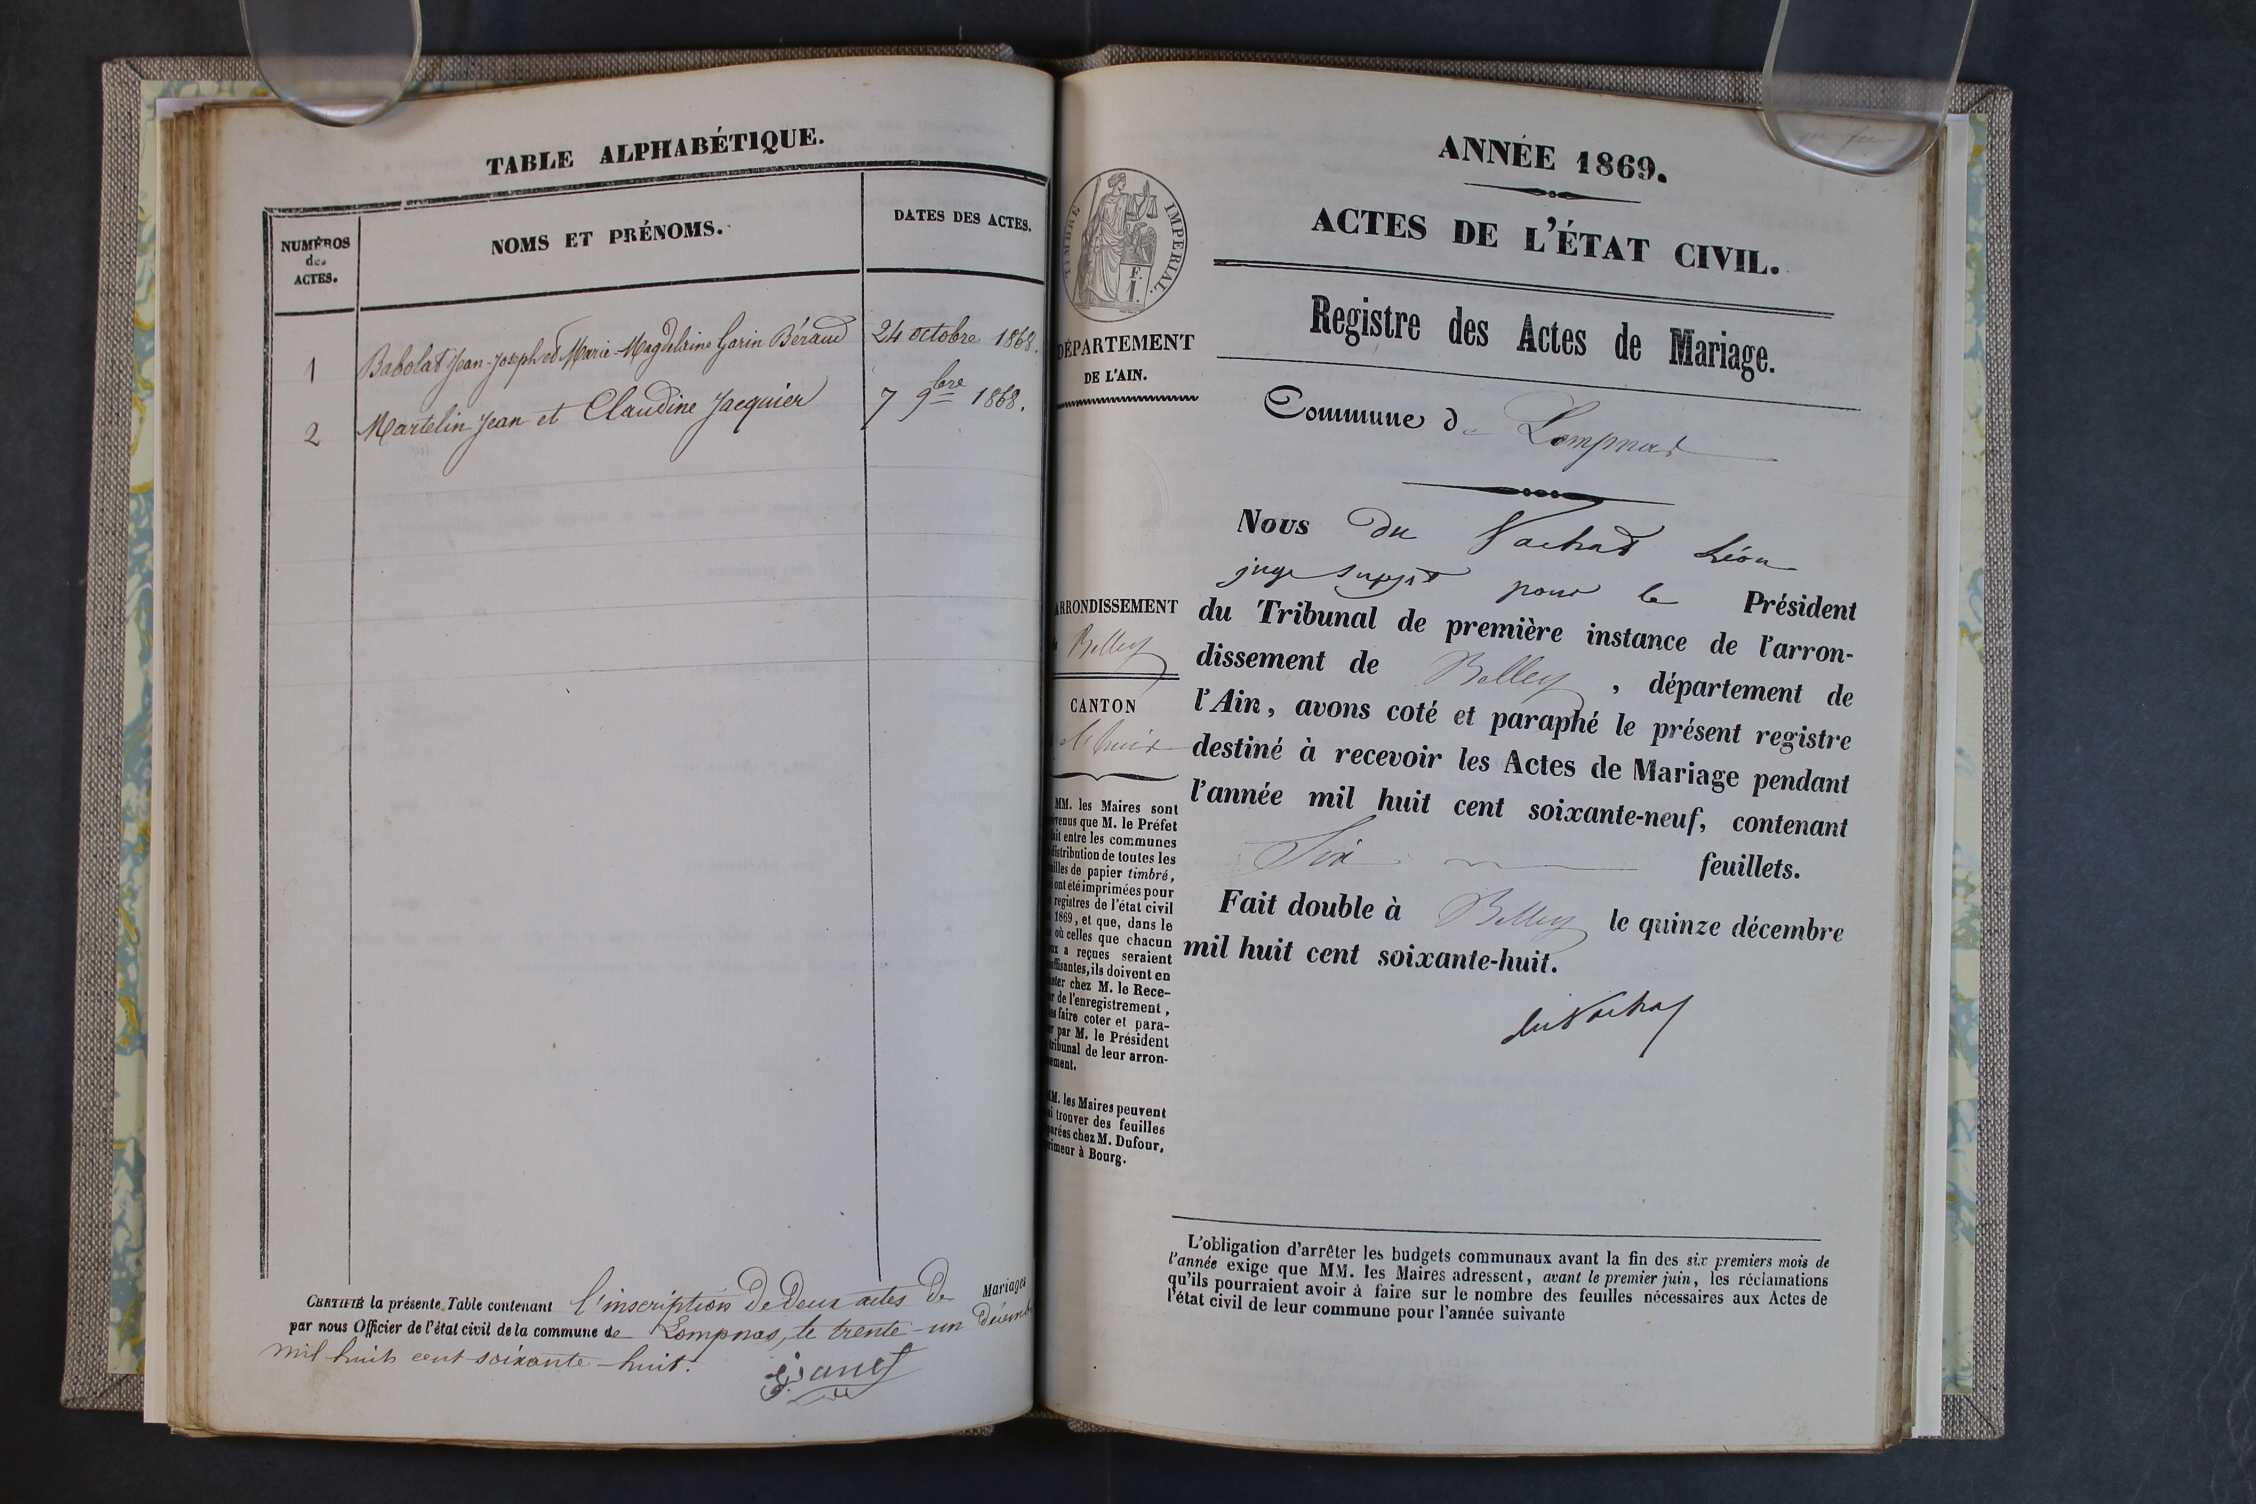 TABLE ALPHABÉTIQUE.
NUMÉROS
des
ACTES.
NOMS ET PRÉNOMS.
DATES DES ACTES.
1 Babolat Jean-Joseph et Marie-Magdelaine Gorin Béraud 24 octobre 1868.
2 Martelin Jean et Claudine Jacquier 7 9bre 1868.
CERTIFIÉ la présente Table contenant l'inscription de deux actes de Mariages
par nous Officier de l'état civil de la commune de Lompnas, le trente-un décemb
mil huit cent soixante-huit.
ANNÉE 1869.
ACTES DE L'ÉTAT CIVIL.
Registre des Actes de Mariage.
Commune de Lompnas
TIMBRE IMPERIAL.
F.
I.
DÉPARTEMENT
DE L'AIN.
ARRONDISSEMENT
Belley
CANTON
MM. les Maires sont
venus que M. le Préfet
ait entre les communes
distribution de toutes les
illes de papier timbré,
i ont été imprimées pour
registres de l'état civil
1869, et que, dans le
où celles que chacun
ux a reçues seraient
uffisantes, ils doivent en
eter chez M. le Rece-
r de l'enregistrement,
es faire coter et para-
r par M. le Président
tribunal de leur arron-
ement.
MM. les Maires peuvent
i trouver des feuilles
parées chez M. Dufour,
rimeur à Bourg.
Nous du Vachat Léon
juge suppt pour le Président
du Tribunal de première instance de l'arron-
dissement de Belley, département de
l'Ain, avons coté et paraphé le présent registre
destiné à recevoir les Actes de Mariage pendant
l'année mil huit cent soixante-neuf, contenant
Six feuillets.
Fait double à Belley le quinze décembre
mil huit cent soixante-huit.
du Vachat
L'obligation d'arrêter les budgets communaux avant la fin des six premiers mois de
l'année exige que MM. les Maires adressent, avant le premier juin, les réclamations
qu'ils pourraient avoir à faire sur le nombre des feuilles nécessaires aux Actes de
l'état civil de leur commune pour l'année suivante